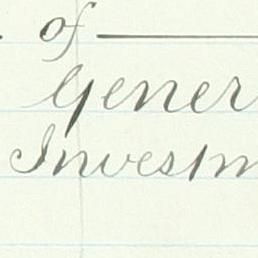 of
Gener
Investm